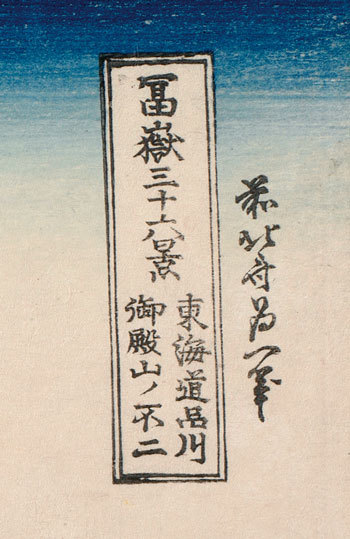 冨嶽三十六景
東海道品川
御殿山ノ不二
前北斎為一筆